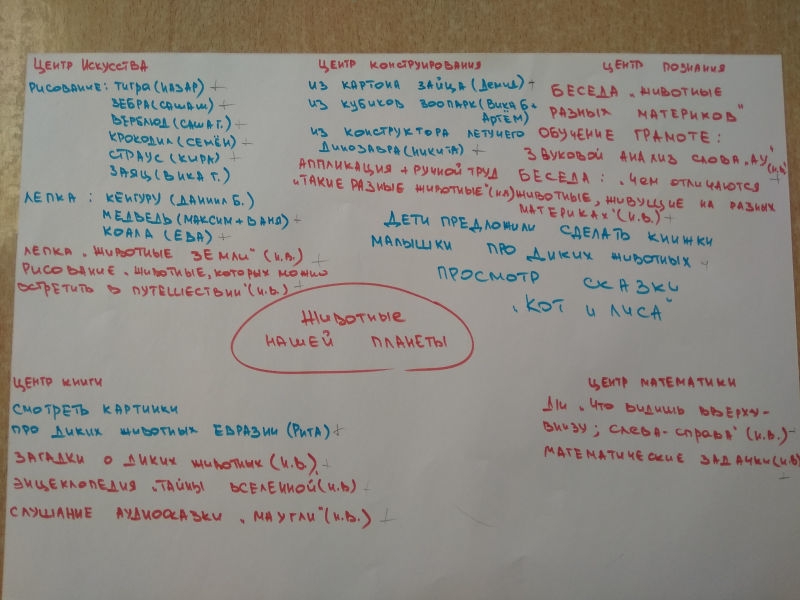 ЦЕНТР ИСКУССТВА
РИСОВАНИЕ: ТИГРА (НАЗАР) +
ЗЕБРА (САША Ш) +
ВЕРБЛЮД (САША Г.) +
КРОКОДИЛ (СЕМЁН) +
СТРАУС (КИРА) +
ЗАЯЦ (ВИКА Г.)
ЛЕПКА: КЕНГУРУ (ДАНИИЛ Б.)
МЕДВЕДЬ (МАКСИМ + ВАНЯ) +
КОАЛА (ЕВА) +
ЛЕПКА „ЖИВОТНЫЕ ЗЕМЛИ" (И.В.) +
РИСОВАНИЕ „ЖИВОТНЫЕ, КОТОРЫХ МОЖНО
ВСТРЕТИТЬ В ПУТЕШЕСТВИИ" (И.В.) +
ЦЕНТР КОНСТРУИРОВАНИЯ
ИЗ КАРТОНА ЗАЙЦА (ДЕМИД) +
ИЗ КУБИКОВ ЗООПАРК (ВИКА Б +
АРТЁМ)
ИЗ КОНСТРУКТОРА ЛЕТУЧЕГО
ДИНОЗАВРА (НИКИТА) +
АППЛИКАЦИЯ + РУЧНОЙ ТРУД
„ТАКИЕ РАЗНЫЕ ЖИВОТНЫЕ"
ЦЕНТР ПОЗНАНИЯ
БЕСЕДА „ЖИВОТНЫЕ
РАЗНЫХ МАТЕРИКОВ"
ОБУЧЕНИЕ ГРАМОТЕ:
ЗВУКОВОЙ АНАЛИЗ СЛОВА „АУ" (И.В.) +
БЕСЕДА: „ЧЕМ ОТЛИЧАЮТСЯ
ЖИВОТНЫЕ, ЖИВУЩИЕ НА РАЗНЫХ
МАТЕРИКАХ" (И.В.) +
ДЕТИ ПРЕДЛОЖИЛИ СДЕЛАТЬ КНИЖКИ
МАЛЫШКИ ПРО ДИКИХ ЖИВОТНЫХ +
ПРОСМОТР СКАЗКИ
„КОТ И ЛИСА"
ЖИВОТНЫЕ
НАШЕЙ ПЛАНЕТЫ
ЦЕНТР КНИГИ
СМОТРЕТЬ КАРТИНКИ
ПРО ДИКИХ ЖИВОТНЫХ ЕВРАЗИИ (РИТА) +
ЗАГАДКИ О ДИКИХ ЖИВОТНЫХ (И.В.) +
ЭНЦЕКЛОПЕДИЯ „ТАЙНЫ ВСЕЛЕННОЙ (И.В) +
СЛУШАНИЕ АУДИОСКАЗКИ „МАУГЛИ" (И.В.) +
ЦЕНТР МАТЕМАТИКИ
Д/И „ЧТО ВИДИШЬ ВВЕРХУ-
ВНИЗУ; СЛЕВА-СПРАВА" (И.В.) +
МАТЕМАТИЧЕСКИЕ ЗАДАЧКИ (И.В) +